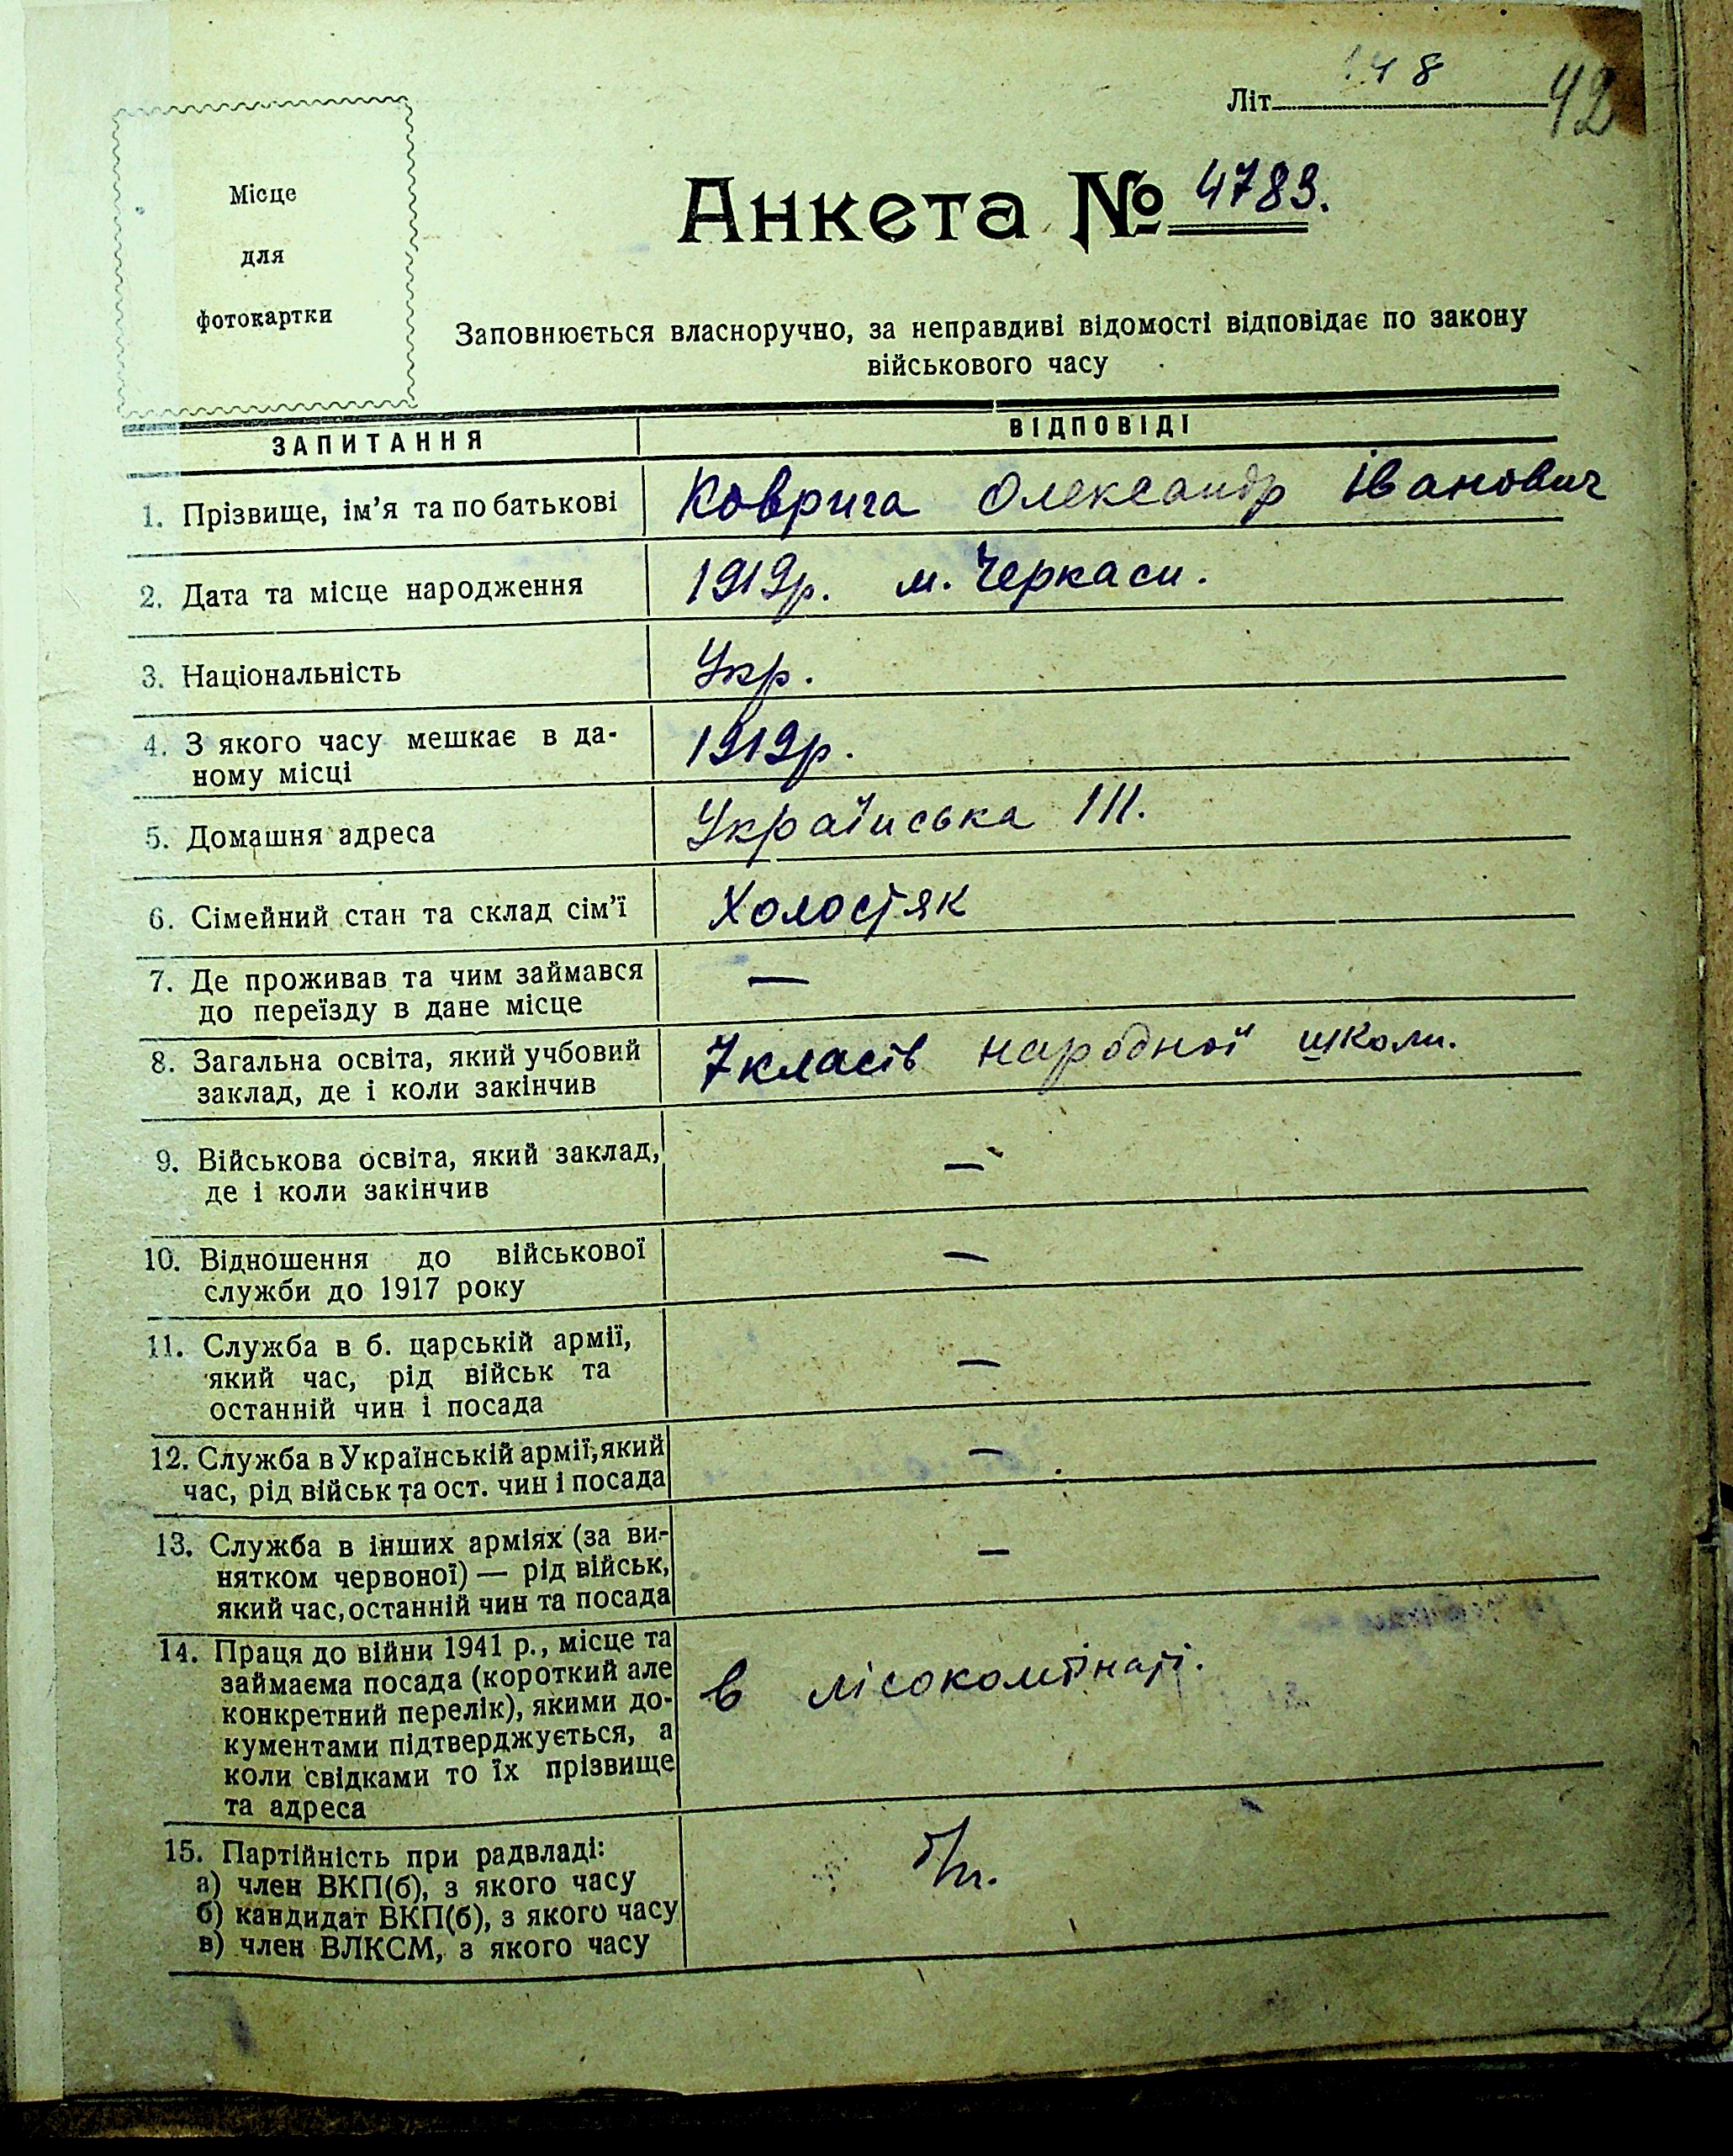 Літ. 148 42
Місце
для
фотокартки
Анкета № 4783.
Заповнюється власноручно, за неправдиві відомості відповідає по закону
військового часу
ЗАПИТАННЯ ВІДПОВІДІ
1. Прізвище, ім'я та по батькові Коврига Олександр Іванович
2. Дата та місце народження 1919р. м. Черкаси.
3. Національність Укр.
4. З якого часу мешкає в да-
ному місці 1919р.
5. Домашня адреса Українська 111.
6. Сімейний стан та склад сім'ї Холостяк
7. Де проживав та чим займався —
до переїзду в дане місце
8. Загальна освіта, який учбовий 7 класів народної школи.
заклад, де і коли закінчив
9. Військова освіта, який заклад, —
де і коли закінчив
10. Відношення до військової —
служби до 1917 року
11. Служба в б. царській армії, —
який час, рід військ та
останній чин і посада
12. Служба в Українській армії, який —
час, рід військ та ост. чин і посада
13. Служба в інших арміях (за ви- —
нятком червоної) — рід військ,
який час, останній чин та посада
14. Праця до війни 1941 р., місце та
займаєма посада (короткий але в лісокомбінаті.
конкретний перелік), якими до-
кументами підтверджується, а
коли свідками то їх прізвище
та адреса
15. Партійність при радвладі: б/п.
а) член ВКП(б), з якого часу
б) кандидат ВКП(б), з якого часу
в) член ВЛКСМ, з якого часу